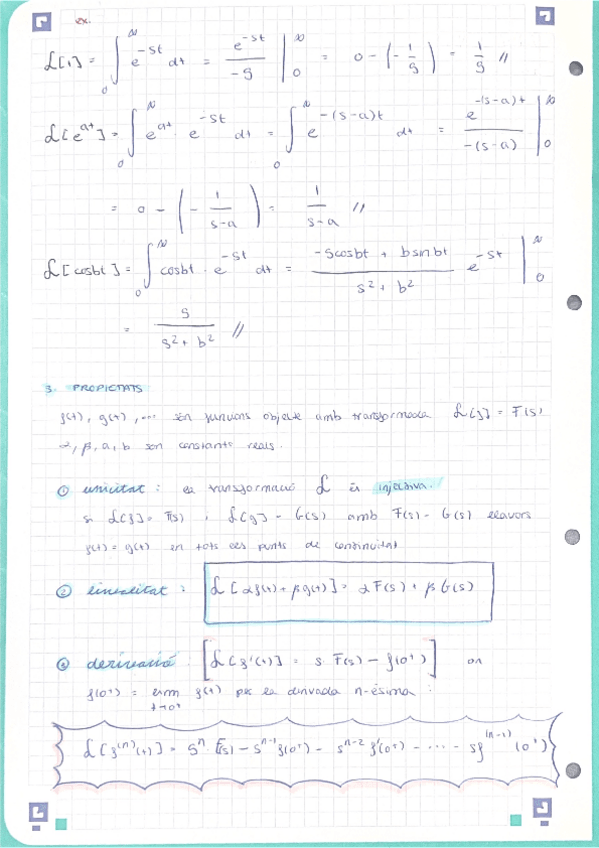 ex.
ℒ[1] = ∫₀^∞ e^{-st} dt = e^{-st}/-s |₀^∞ = 0 - (-1/s) = 1/s //
ℒ[e^{at}] = ∫₀^∞ e^{at} · e^{-st} dt = ∫₀^∞ e^{-(s-a)t} dt = e^{-(s-a)t}/-(s-a) |₀^∞
= 0 - (-1/s-a) = 1/s-a //
ℒ[cosbt] = ∫₀^∞ cosbt · e^{-st} dt = -scosbt + bsinbt/s²+b² e^{-st} |₀^∞
= s/s²+b² //
3. PROPIETATS
f(t), g(t), ... són funcions objecte amb transformada ℒ[f] = F(s)
α, β, a, b són constants reals.
① unicitat : la transformació ℒ és injectiva.
si ℒ[f] = F(s), ℒ[g] = G(s) amb F(s) = G(s) llavors
f(t) = g(t) en tots els punts de continuïtat
② linealitat : ℒ[αf(t) + βg(t)] = αF(s) + βG(s)
③ derivació : [ℒ[f'(t)] = s·F(s) - f(0⁺)] on
f(0⁺) = lim_{t→0⁺} f(t) per la derivada n-èsima :
ℒ[f^{(n)}(t)] = s^n F(s) - s^{n-1} f(0⁺) - s^{n-2} f'(0⁺) - ... - sf^{(n-1)}(0⁺)